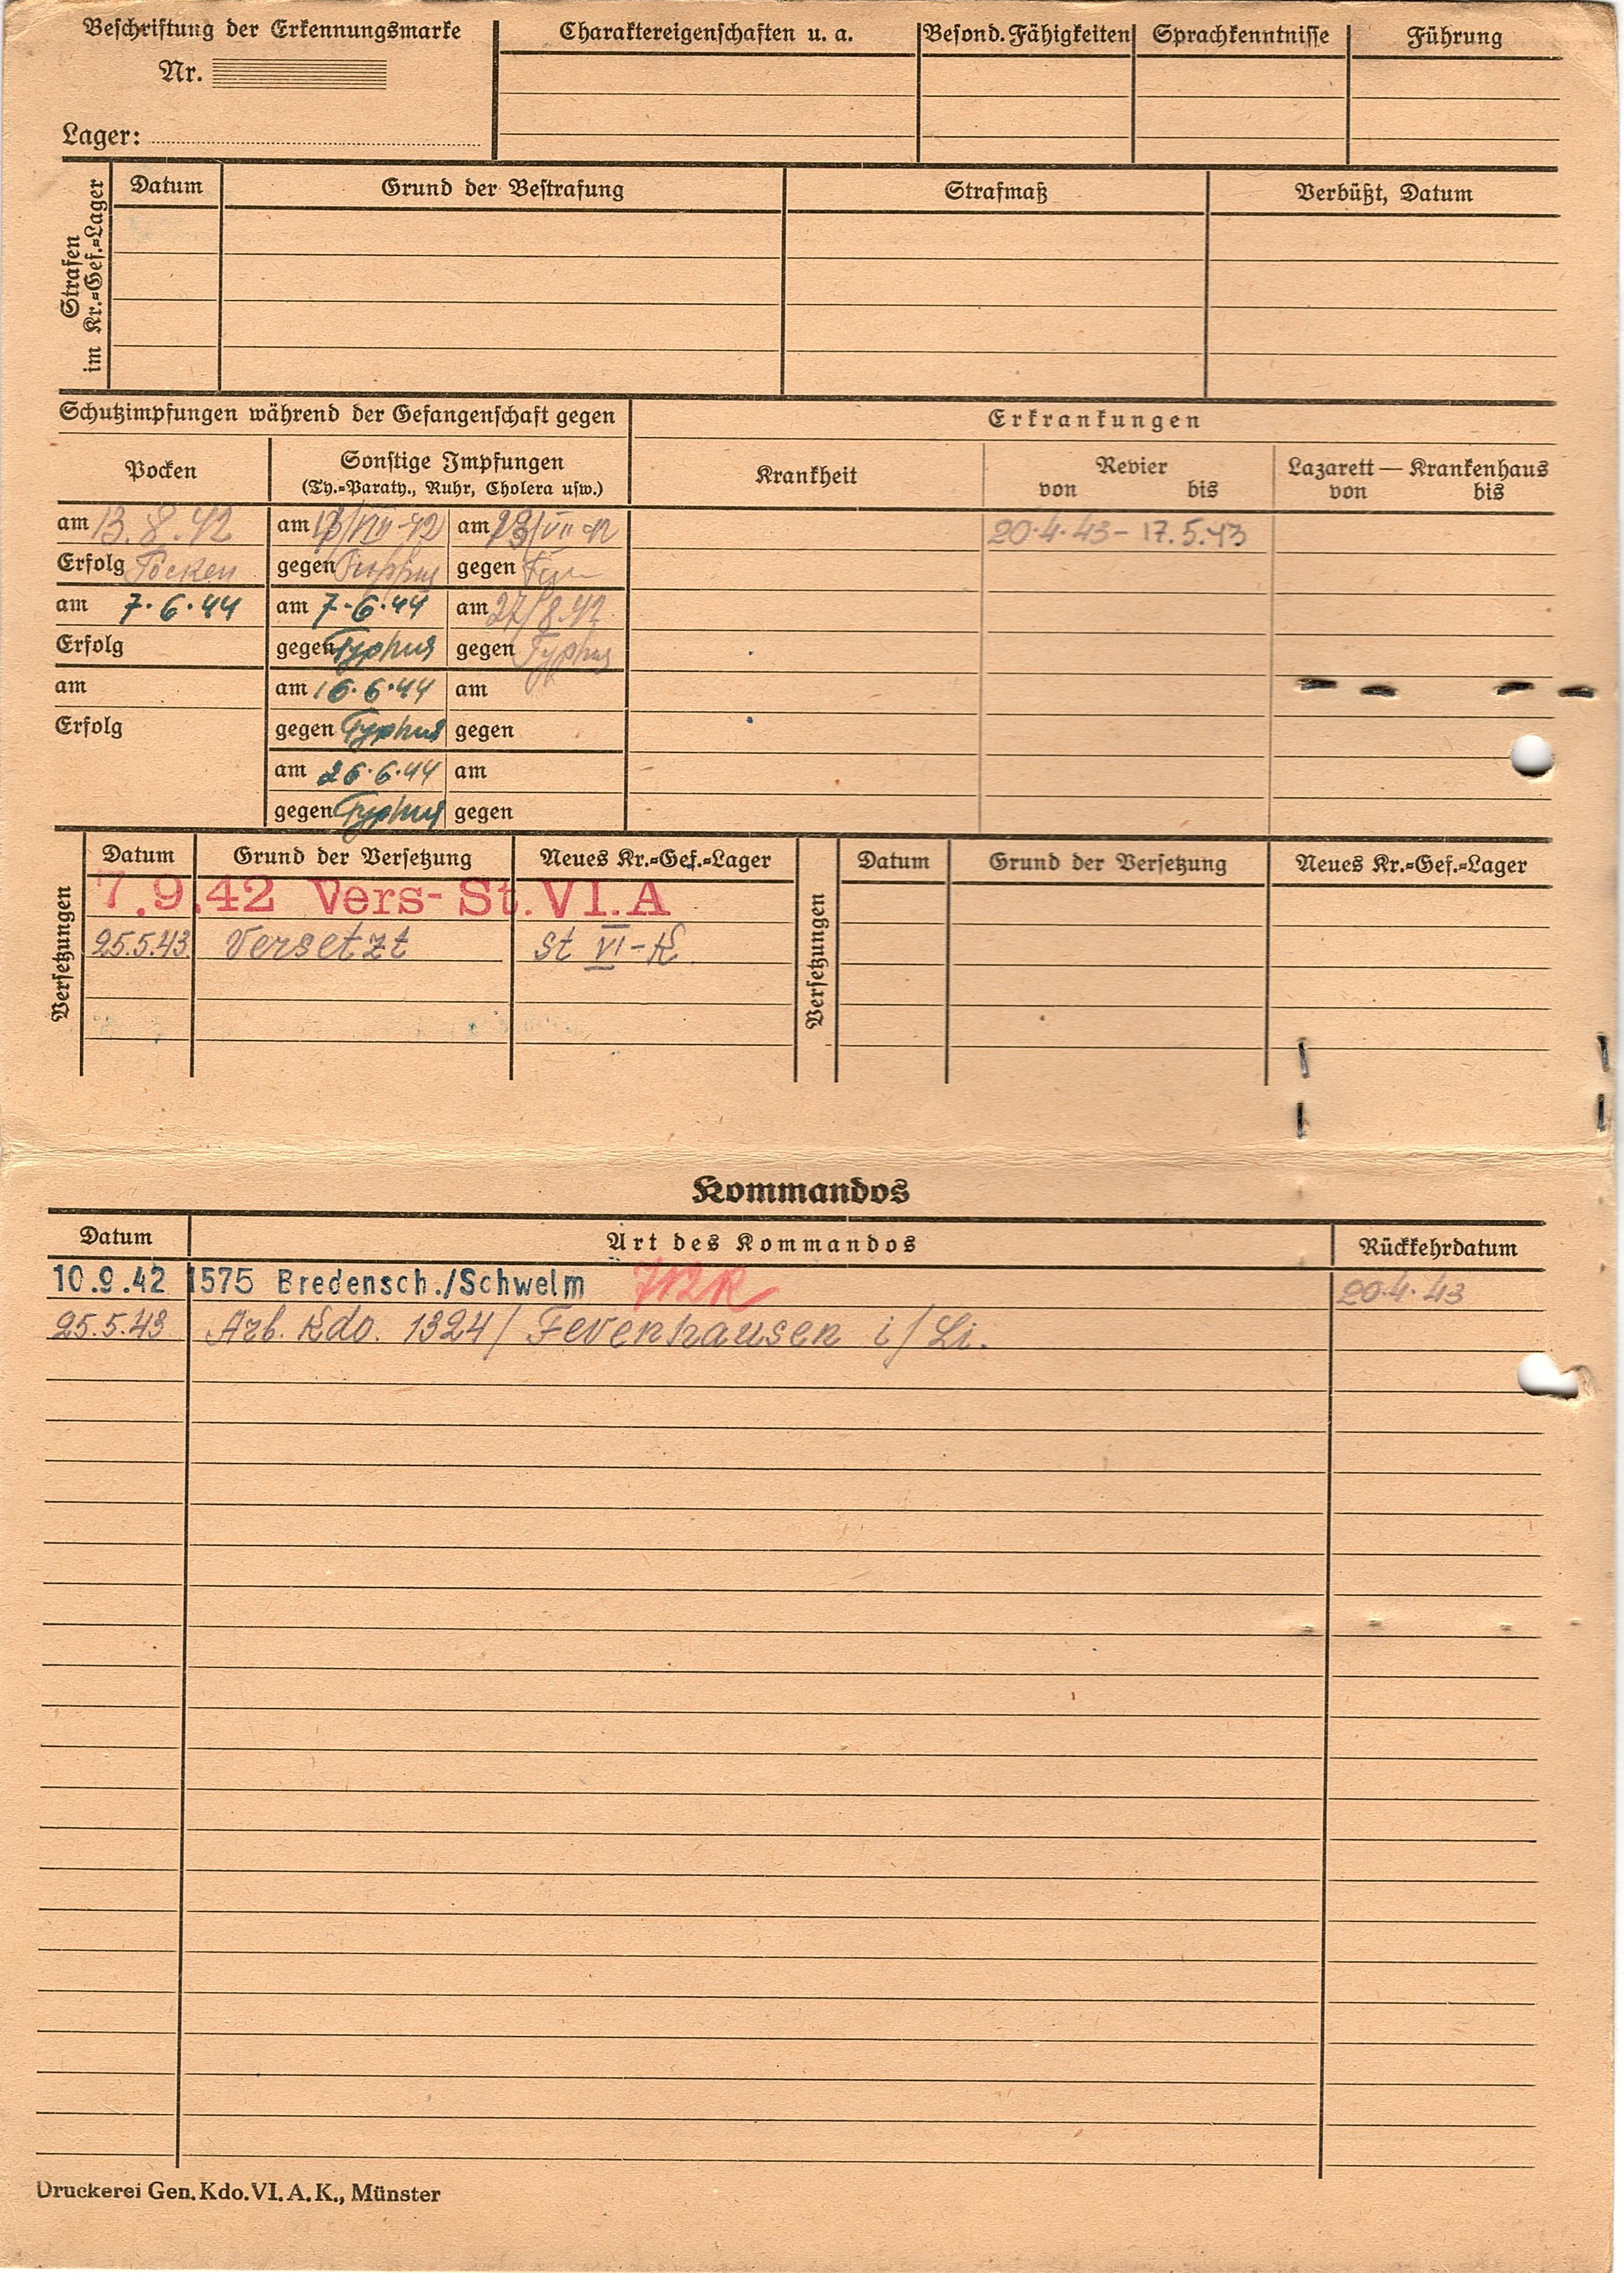 Beschriftung der Erkennungsmarke
Nr.
Lager:
Charaktereigenschaften u. a.
Besond. Fähigkeiten
Sprachkenntnisse
Führung
Strafen im Kr.=Gef.=Lager
Datum
Grund der Bestrafung
Strafmaß
Verbüßt, Datum
Schutzimpfungen während der Gefangenschaft gegen
Erkrankungen
Pocken
Sonstige Impfungen
(Ty.=Paraty., Ruhr, Cholera usw.)
Krankheit
Revier
von bis
Lazarett — Krankenhaus
von bis
am 13.8.42 am am
20.4.43 - 17.5.43
Erfolg Pocken gegen Typhus gegen
am 7.6.44 am 7.6.44 am 27/8.42
Erfolg gegen Typhus gegen Typhus
am am 16.6.44 am
Erfolg gegen Typhus gegen
am 26.6.44 am
gegen Typhus gegen
Versetzungen
Datum Grund der Versetzung Neues Kr.=Gef.=Lager
7.9.42 Vers- St. VI.A
25.5.43 Versetzt St VI-K
Versetzungen
Datum Grund der Versetzung Neues Kr.=Gef.=Lager
Kommandos
Datum Art des Kommandos Rückkehrdatum
10.9.42 1575 Bredensch./Schwelm 20.4.43
25.5.43 Arb. Kdo. 1324/ Fevenhausen i/Li.
Druckerei Gen. Kdo. VI. A. K., Münster